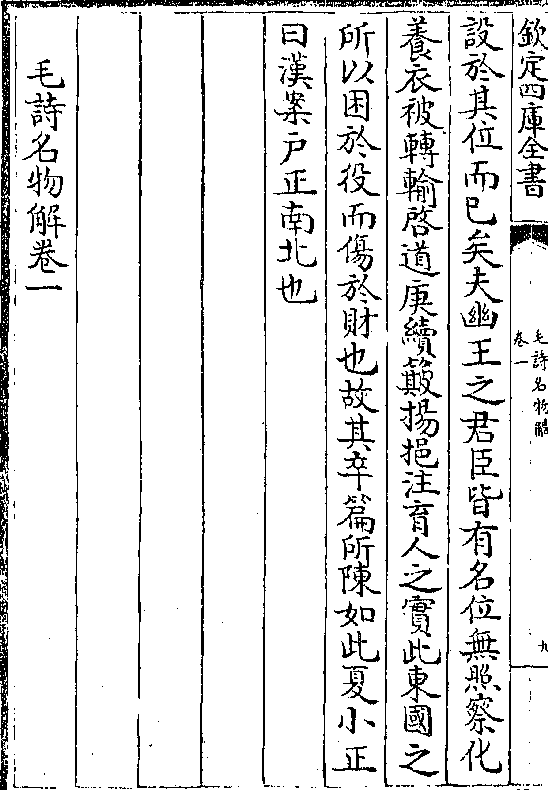 欽定四庫全書
毛詩名物解
卷一
九
設於其位而已矣夫幽王之君臣皆有名位無照察化
養衣被轉輸啓道庚續簸揚挹注育人之實此東國之
所以困於役而傷於財也故其卒篇所陳如此夏小正
曰漢案户正南北也
毛詩名物解卷一